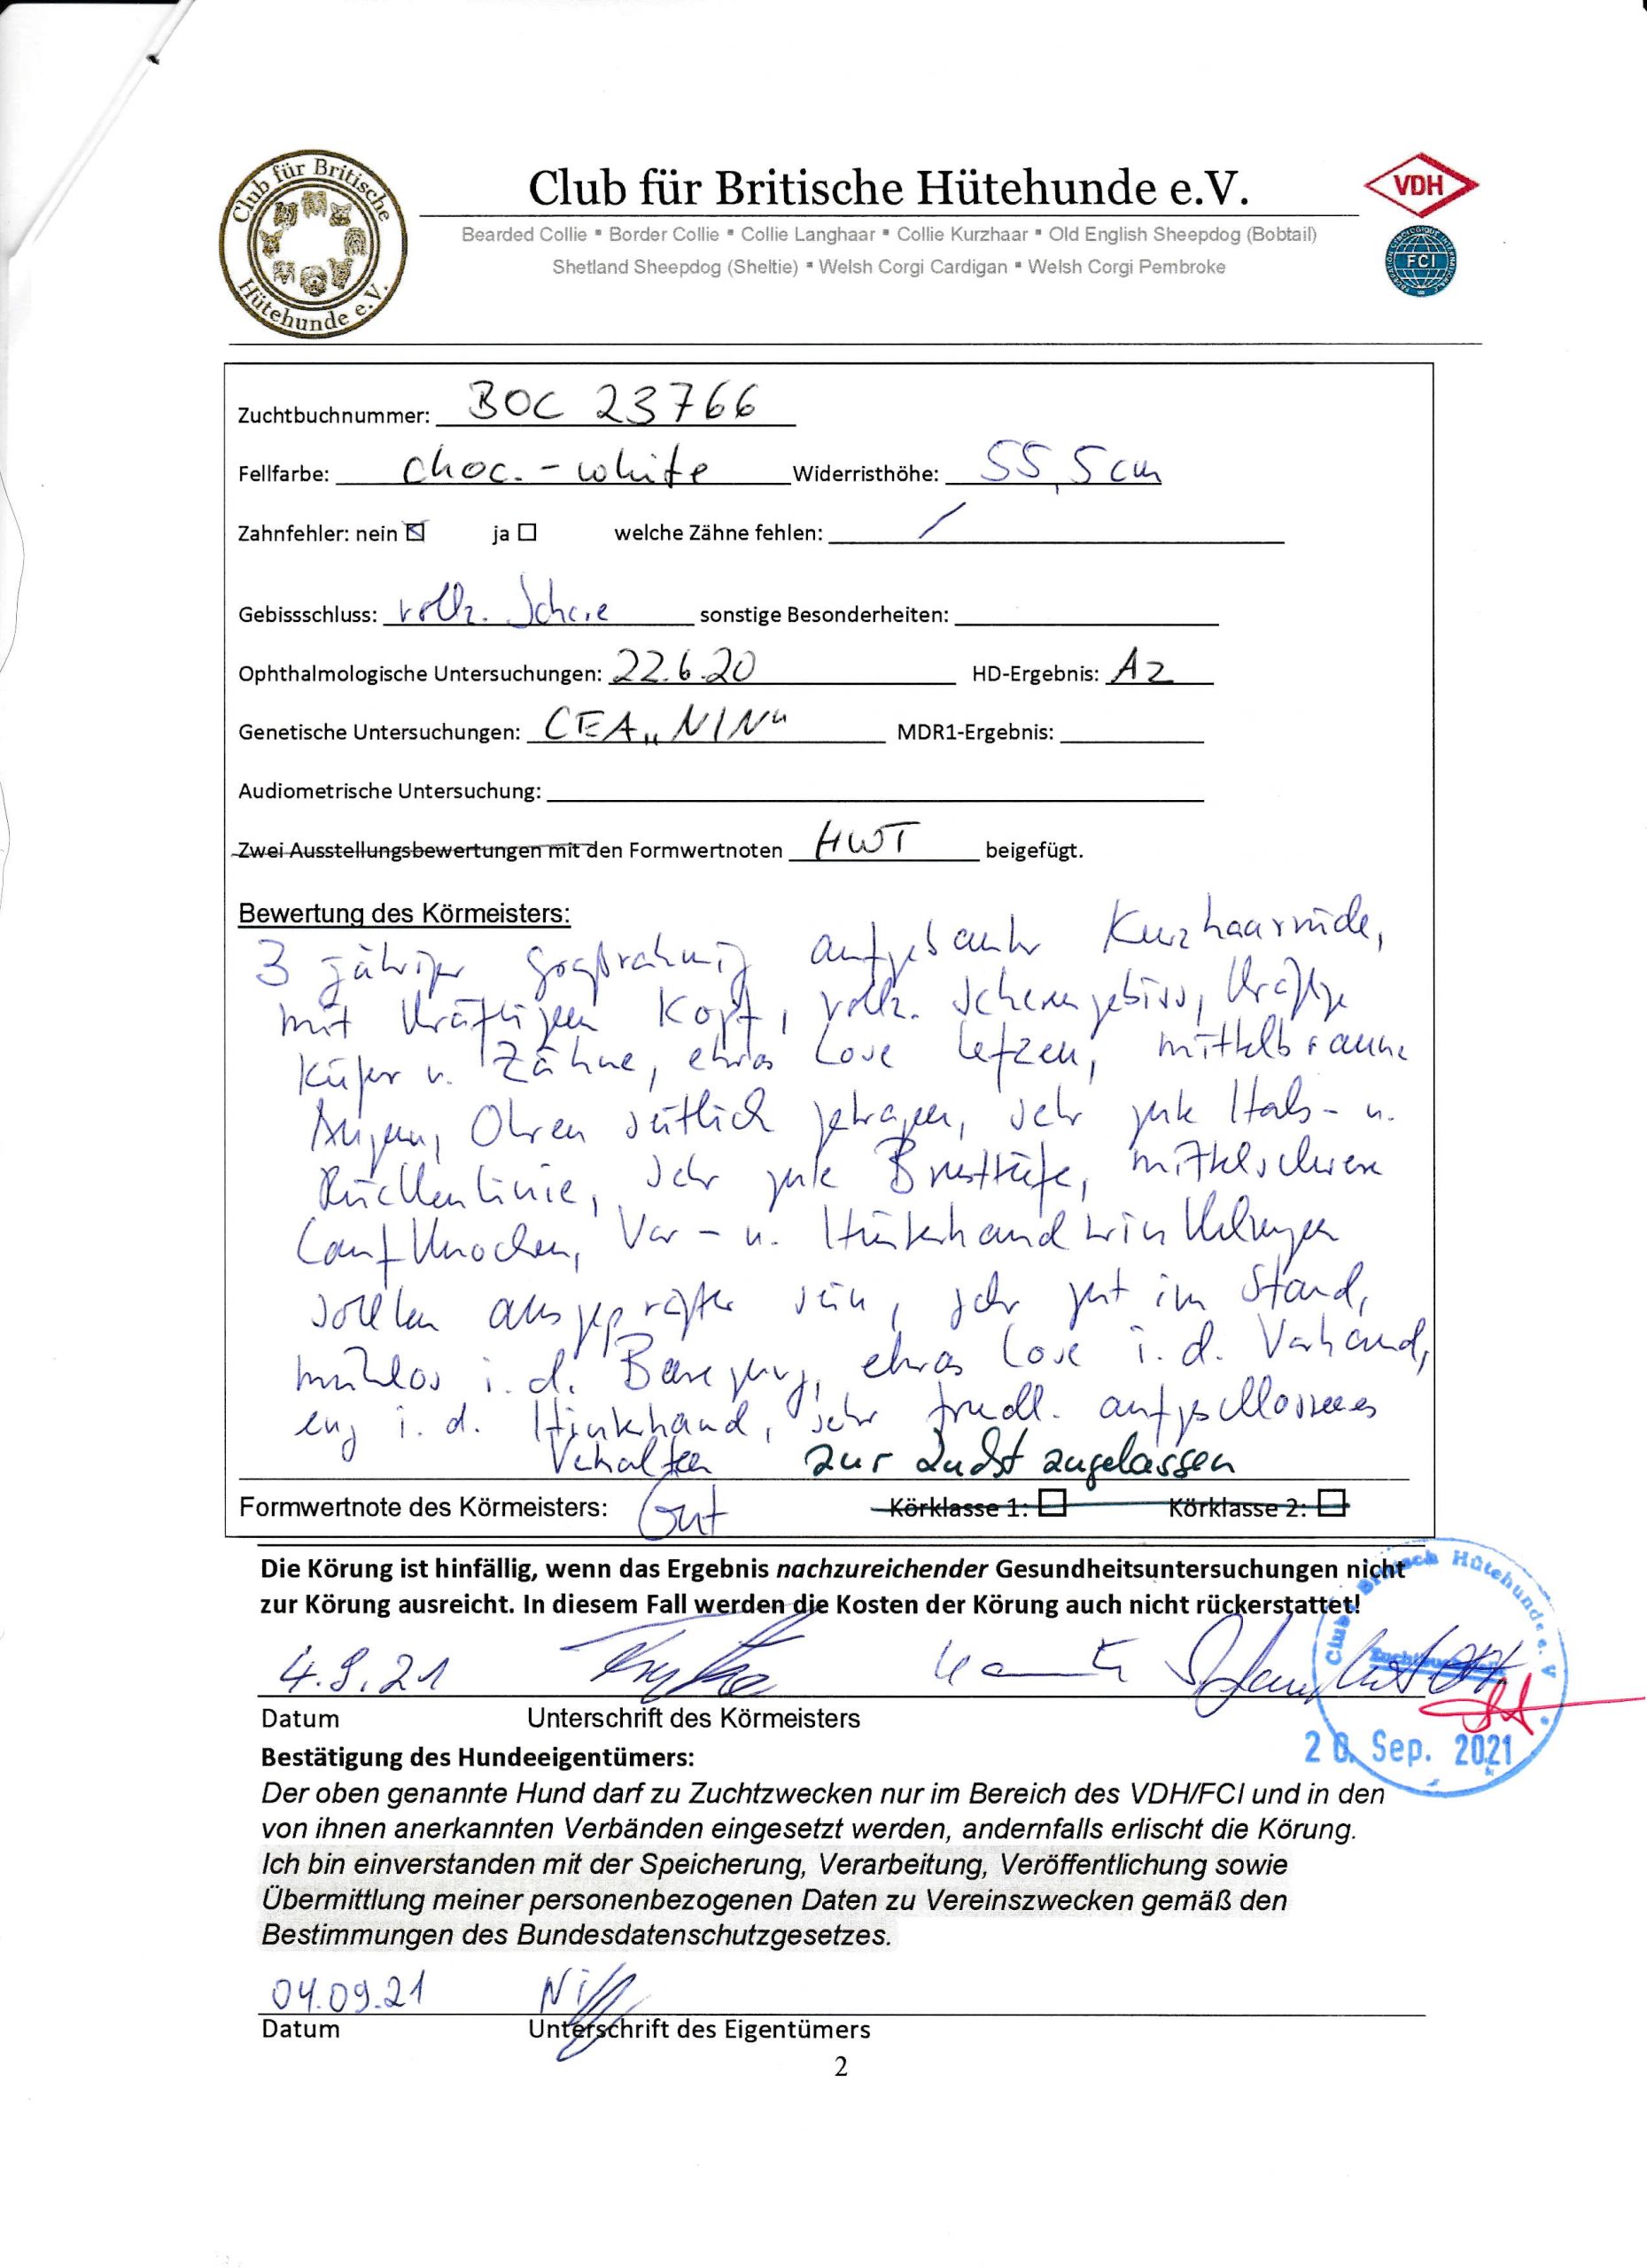 Club für Britische
Hütehunde e.V.
Club für Britische Hütehunde e.V.
VDH
FCI
Bearded Collie ▪ Border Collie ▪ Collie Langhaar ▪ Collie Kurzhaar ▪ Old English Sheepdog (Bobtail)
Shetland Sheepdog (Sheltie) ▪ Welsh Corgi Cardigan ▪ Welsh Corgi Pembroke
Zuchtbuchnummer: BOC 23766
Fellfarbe: choc. - white Widerristhöhe: 55,5 cm
Zahnfehler: nein ☒ ja ☐ welche Zähne fehlen: /
Gebissschluss: vollz. Schere sonstige Besonderheiten:
Ophthalmologische Untersuchungen: 22.6.20 HD-Ergebnis: A2
Genetische Untersuchungen: CEA „N/N“ MDR1-Ergebnis:
Audiometrische Untersuchung:
Zwei Ausstellungsbewertungen mit den Formwertnoten HWT beigefügt.
Bewertung des Körmeisters:
3 jähriger großrahmig aufgebauter Kurzhaarrüde,
mit kräftigem Kopf, vollz. Scherengebiss, kräftige
Kiefer u. Zähne, etwas lose Lefzen, mittelbraune
Augen, Ohren seitlich getragen, sehr gute Hals- u.
Rückenlinie, sehr gute Brusttiefe, mittelschwere
Laufknochen, Vor- u. Hinterhandwinkelungen
sollten ausgeprägter sein, sehr gut im Stand,
mühelos i. d. Bewegung, etwas lose i. d. Vorhand,
eng i. d. Hinterhand, sehr freudl. aufgeschlossenes
Verhalten zur Zucht zugelassen
Formwertnote des Körmeisters: Gut Körklasse 1: ☐ Körklasse 2: ☐
Die Körung ist hinfällig, wenn das Ergebnis nachzureichender Gesundheitsuntersuchungen nicht
zur Körung ausreicht. In diesem Fall werden die Kosten der Körung auch nicht rückerstattet!
Club Britisch Hütehunde e. V
4.9.21
Datum Unterschrift des Körmeisters
20. Sep. 2021
Bestätigung des Hundeeigentümers:
Der oben genannte Hund darf zu Zuchtzwecken nur im Bereich des VDH/FCI und in den
von ihnen anerkannten Verbänden eingesetzt werden, andernfalls erlischt die Körung.
Ich bin einverstanden mit der Speicherung, Verarbeitung, Veröffentlichung sowie
Übermittlung meiner personenbezogenen Daten zu Vereinszwecken gemäß den
Bestimmungen des Bundesdatenschutzgesetzes.
04.09.21
Datum Unterschrift des Eigentümers
2